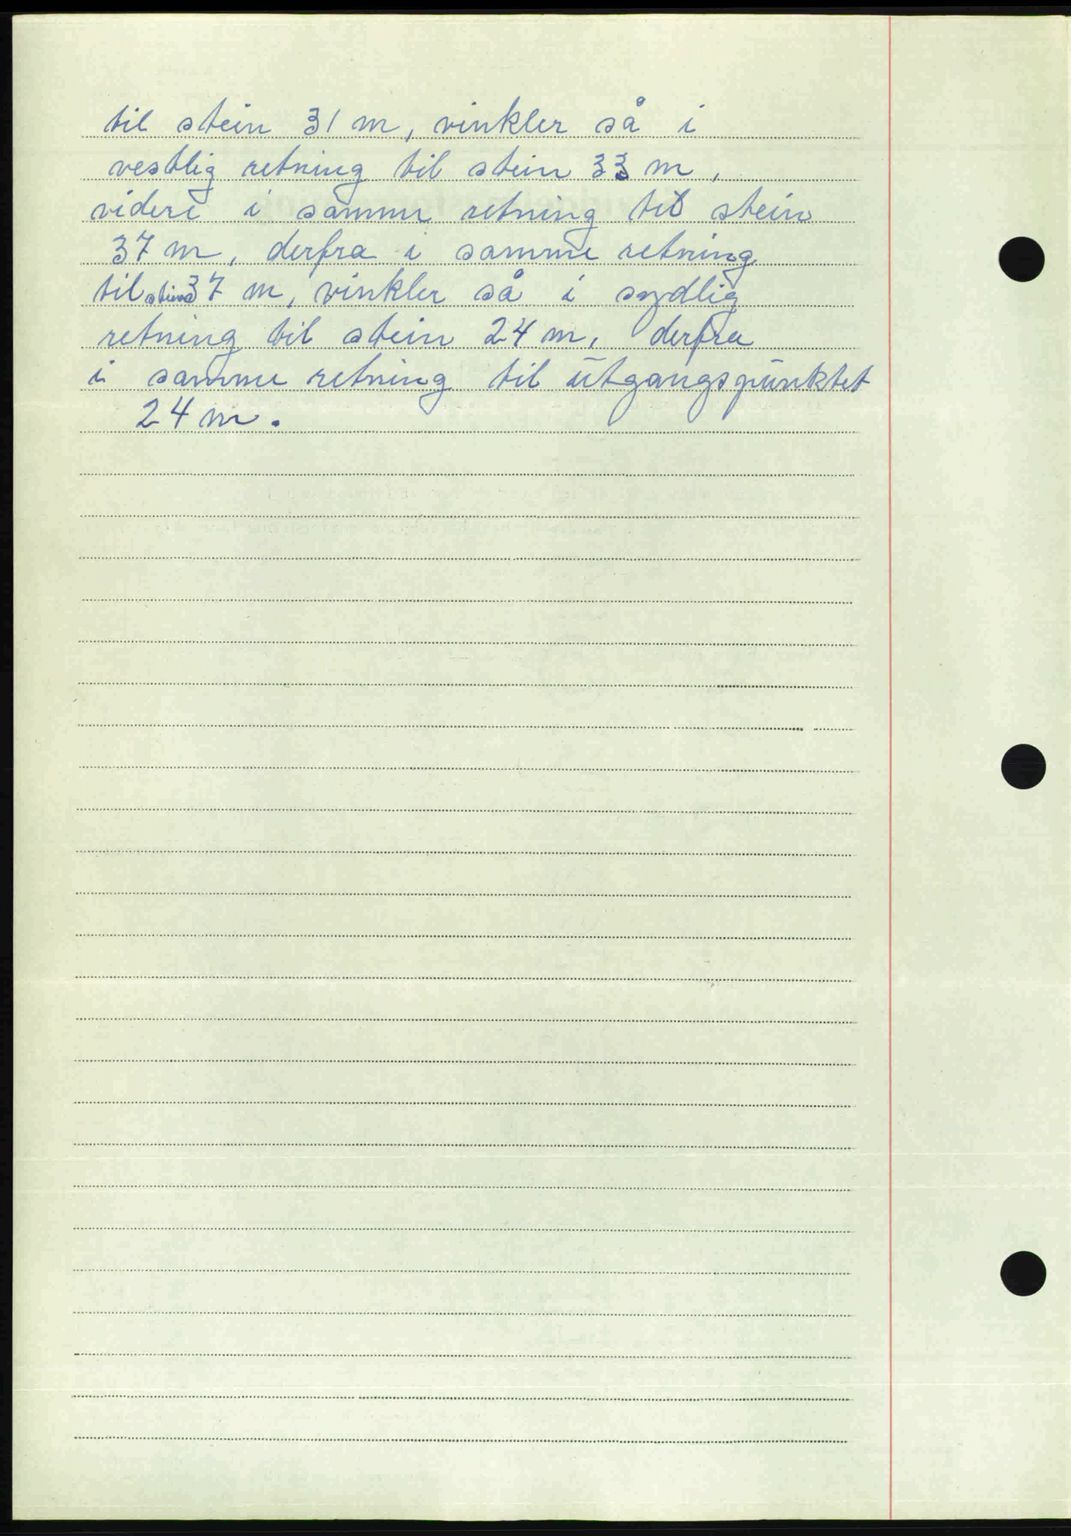 til stein 31 m, vinkler så i
vestlig retning til stein 33 m,
videre i samme retning til stein
37 m, derfra i samme retning
til stein 37 m, vinkler så i sydlig
retning til stein 24 m, derfra
i samme retning til utgangspunktet
24 m.